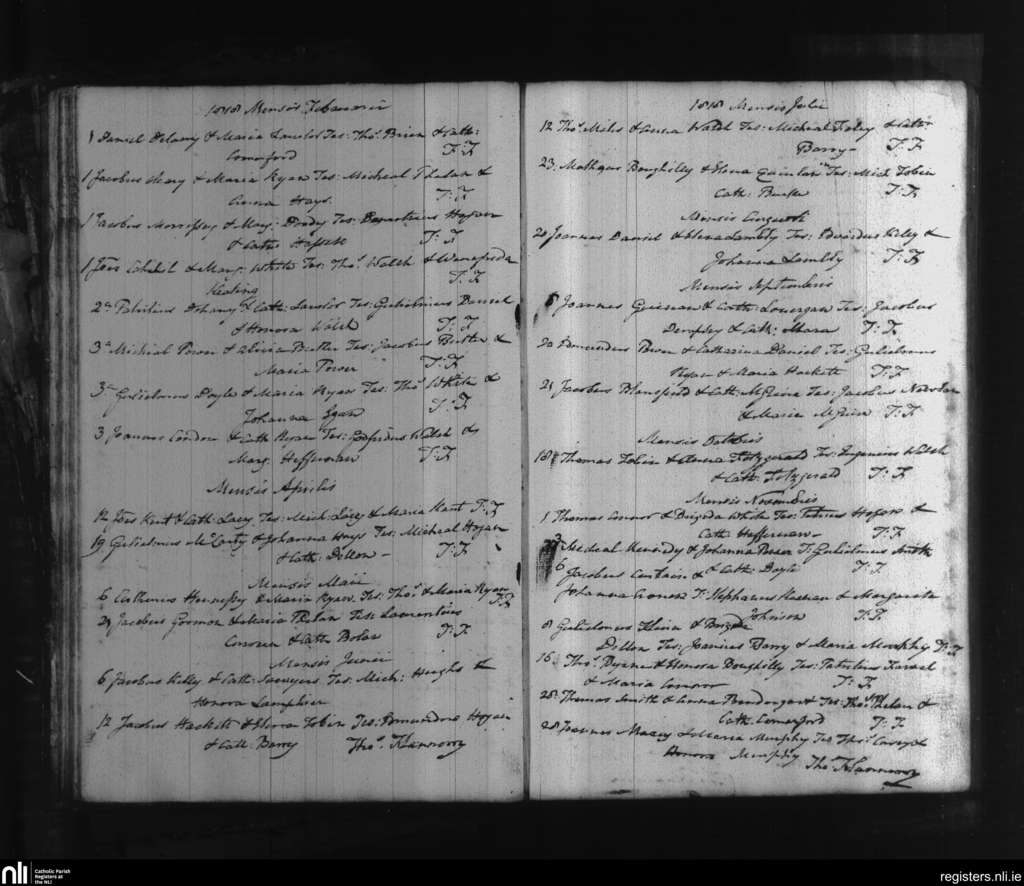 1818 Mensis Februarii
1 Daniel Delany & Maria Lawlor Tes: Thos. Brien & Cath:
Comerford T: F
1 Jacobus Shay & Maria Ryan Tes: Micheal Phelan &
Anna Hays. T: F
1 Jacobus Morrissey & Mary: Doody Tes: Hogan
& Cath: Hassett T: F
1 Joes Cahill & Marg: White Tes: Thos. Walsh & Wanefreda
Keating T: F
2 Patritius Delany & Cath: Lawlor Tes: Gulielmus Daniel
& Honora Walsh T: F
3 Micheal Power & Alicia Butler Tes: Jacobus Butler &
Maria Power T: F
3 Gulielmus Doyle & Maria Ryan Tes: Thos. White &
Johanna Egan T: F
3 Joannes Condon & Cath Ryan Tes: Walsh &
Marg. Heffernan T: F
Mensis Aprilis
12 Joes Kent & Cath: Lacy Tes: Mich: Lacy & Maria Kent T: F
19 Gulielmus McCarty & Johanna Hays Tes: Micheal Hogan
& Cath: Dillon - T: F
Mensis Maii
6 Hennessy & Maria Ryan Tes: Thos. & Maria Ryan T: F
24 Jacobus Gorman & Maria Tes: Laurentius
& Cath Bolan T: F
Mensis Junii
6 Jacobus Kelly & Cath: Tes: Mich: Hughs &
Honora Lanphier
12 Jacobus Hackett & Elena Tobin Tes: Edmundus Hogan
& Cath: Barry Thos. Flannery
1818 Mensis Julii
12 Thos. Miles & Anna Walsh Tes: Micheal Foley & Cath:
Barry - T: F
23 Matheus Boughilly & Elena Quinlan Tes: Mich Tobin
Cath: Burke T: F
Mensis Augusti
20 Joannes Daniel & Elena Lambly Tes: Riley &
Johanna Lambly T: F
Mensis Septembris
8 Joannes Guinan & Cath: Lonergan Tes: Jacobus
Dempsey & Cath: Mara T: F
20 Edmundus Power & Catharina Daniel Tes: Gulielmus
Ryan & Maria Hackett T: F
21 Jacobus Blansfield & Cath: McGuire Tes: Jacobus
& Maria McGuire T: F
Mensis Octobris
18 Thomas Tobin & Anna Fitzgerald Tes: Eugenius Walsh
& Cath: Fitzgerald T: F
Mensis Novembris
1 Thomas Connor & Brigida White Tes: Petrus Hogan &
Cath Heffernan - T: F
3 Micheal Kennedy & Johanna T: Gulielmus Smith
& Cath: Doyle T: F
6 Jacobus &
Johanna T: Stephanus & Margarita
Johnson T: F
8 Gulielmus & Brigida
Dillon Tes: Barry & Maria Murphy T: F
16 Thos. Bryan & Honora Boughilly Tes: Patritius
& Maria Connor T: F
28 Thomas Smith & Anna Prendergast Tes: Thos. Phelan &
Cath: Comerford T: F
28 Joannes & Maria Murphy Tes Thos. Carey &
Honora Murphy Thos. Flannery
nli Catholic Parish
Registers at
the NLI
registers.nli.ie